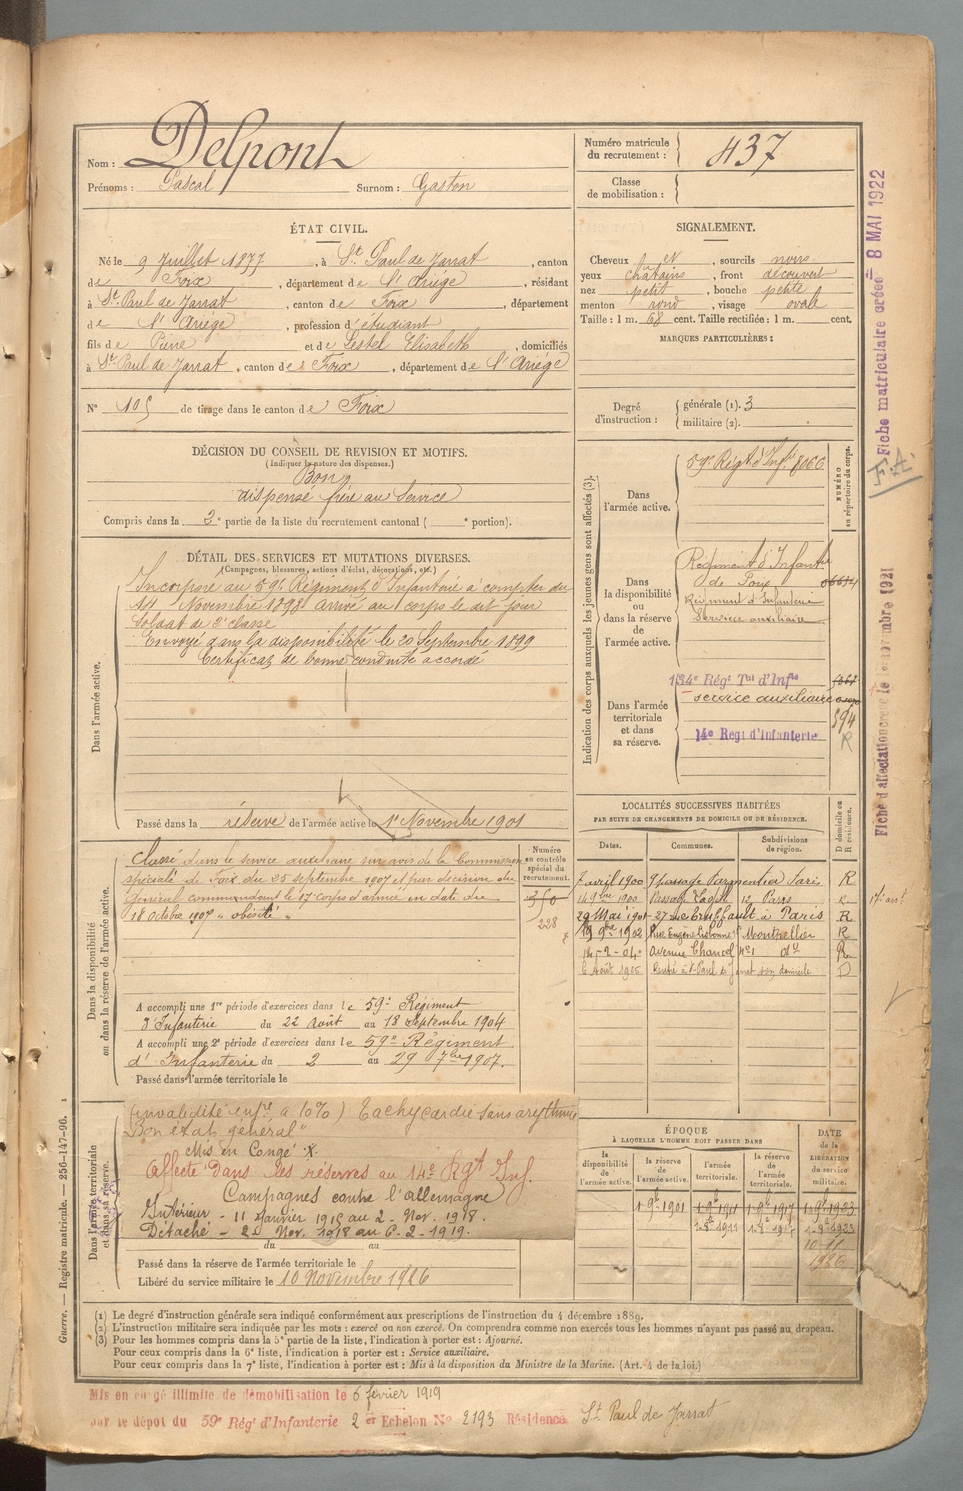 Nom : Delpont
Prénoms : Pascal Surnom : Gaston
Numéro matricule du recrutement : 437
Classe de mobilisation :
ÉTAT CIVIL.
Né le 9 Juillet 1877, à St Paul de Jarrat, canton
de Foix, département de l'Ariège, résidant
à St Paul de Jarrat, canton de Foix, département
de l'Ariège, profession d'étudiant
fils de Pierre et de Lestel Elisabeth, domiciliés
à St Paul de Jarrat, canton de Foix, département de l'Ariège
N° 105 de tirage dans le canton de Foix
SIGNALEMENT.
Cheveux et, sourcils noirs
yeux châtains, front découvert
nez petit, bouche petite
menton rond, visage ovale
Taille : 1 m. 68 cent. Taille rectifiée : 1 m. cent.
MARQUES PARTICULIÈRES :
Degré d'instruction : générale (1). 3
militaire (2).
DÉCISION DU CONSEIL DE REVISION ET MOTIFS.
(Indiquer la nature des dispenses.)
Bon
dispensé frère au Service
Compris dans la 2e partie de la liste du recrutement cantonal ( e portion).
DÉTAIL DES SERVICES ET MUTATIONS DIVERSES.
(Campagnes, blessures, actions d'éclat, décorations, etc.)
Dans l'armée active.
Incorporé au 59e Régiment d'Infanterie à compter du
14 Novembre 1898 arrivé au corps le dit jour
Soldat de 2e classe
Envoyé dans la disponibilité le 20 Septembre 1899
Certificat de bonne conduite accordé
Passé dans la réserve de l'armée active le 1er Novembre 1901
Indication des corps auxquels les jeunes gens sont affectés (3).
NUMÉRO au répertoire du corps.
Dans l'armée active.
59e Régt d'Infie 8066
Dans la disponibilité ou dans la réserve de l'armée active.
Régiment d'Infanterie
de Foix
Régiment d'Infanterie
Service auxiliaire
Dans l'armée territoriale et dans sa réserve.
134e Régt Tal d'Infie
service auxiliaire
594
14e Regt d'Infanterie R
Dans la disponibilité ou dans la réserve de l'armée active.
Numéro au contrôle spécial du recrutement.
350
228
Classé dans le service auxiliaire sur avis de la Commission
spéciale de Foix du 25 septembre 1907 et par décision du
Général commandant le 17e corps d'armée en date du
18 Octobre 1907 "obésité"
A accompli une 1re période d'exercices dans le 59e Régiment
d'Infanterie du 22 Août au 18 Septembre 1904
A accompli une 2e période d'exercices dans le 59e Régiment
d'Infanterie du 2 au 29 7bre 1907.
Passé dans l'armée territoriale le
LOCALITÉS SUCCESSIVES HABITÉES
PAR SUITE DE CHANGEMENTS DE DOMICILE OU DE RÉSIDENCE.
Dates. Communes. Subdivisions de région. D domicile ou R résidence.
7 avril 1900 9 passage Parmentier Paris R
14 9bre 1900 Passage
29 Mai 1901 27 rue Cruffault à Paris R
13 9bre 1902 Rue Eugène Lisbonne Montpellier R
14-2-04 Avenue Chancel n°1 do
6 Août 1905 Rentré à St Paul de Jarrat son domicile D
Dans l'armée territoriale et dans sa réserve.
(invalidité infre à 10%) Tachycardie sans arythmie
Bon état général"
Mis en Congé
Affecté dans les réserves au 14e Rgt Inf.
Campagnes contre l'Allemagne
Intérieur - 11 Janvier 1915 au 2 - Nov. 1918.
Détaché - 2 Nov. 1918 au 6-2-1919.
du au
Passé dans la réserve de l'armée territoriale le
Libéré du service militaire le 10 Novembre 1926
ÉPOQUE
À LAQUELLE L'HOMME DOIT PASSER DANS
la disponibilité de l'armée active. la réserve de l'armée active. l'armée territoriale. la réserve de l'armée territoriale. DATE de la LIBÉRATION du service militaire.
10-11
1926
(1) Le degré d'instruction générale sera indiqué conformément aux prescriptions de l'instruction du 4 décembre 1889.
(2) L'instruction militaire sera indiquée par les mots : exercé ou non exercé. On comprendra comme non exercés tous les hommes n'ayant pas passé au drapeau.
(3) Pour les hommes compris dans la 5e partie de la liste, l'indication à porter est : Ajourné.
Pour ceux compris dans la 6e liste, l'indication à porter est : Service auxiliaire.
Pour ceux compris dans la 7e liste, l'indication à porter est : Mis à la disposition du Ministre de la Marine. (Art. 4 de la loi.)
Mis en congé illimité de démobilisation le 6 février 1919
par le dépôt du 59e Rég' d'Infanterie 2 er Echelon No 2193 Résidence St Paul de Jarrat
Guerre. — Registre matricule. — 256-147-96.
Fiche matriculaire créée 8 MAI 1922
F.A.
Fiche d'affectation créée le novembre 1921